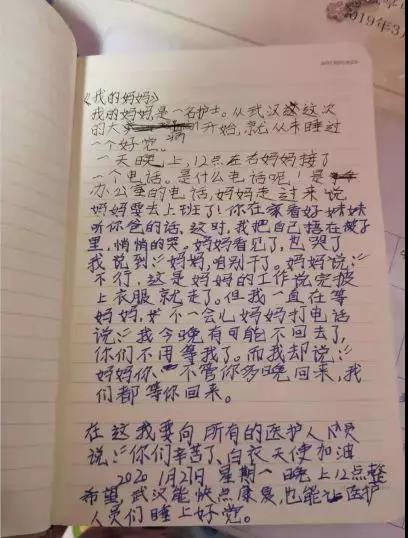 2019年3月
《我的妈妈》
我的妈妈,是一名护士。从武汉这次
的大病开始,就从未睡过
一个好觉。
一天晚上,12点左右妈妈接了
一个电话。是什么电话呢!是
办公室的电话,妈妈走过来说
妈妈要去上班了!你在家看好妹妹
听你爸的话,这时,我把自己捂在被子
里,悄悄的哭。妈妈看见了,也哭了
我说到:“妈妈,咱别干了。妈妈说:“
不行,这是妈妈的工作说完披
上衣服就走了。但我一直在等
妈妈,不一会儿妈妈打电话
说:“我今晚有可能不回去了,
你们不用等我了。而我却说:“
妈妈你、不管你多晚回来,我
们都等你回来。
在这我要向所有的医护人员
说:“你们辛苦了、白衣天使加油
2020 1月21日 星期一 晚上12点整
希望武汉能快点康复,也能让医护
人员们睡上好觉。